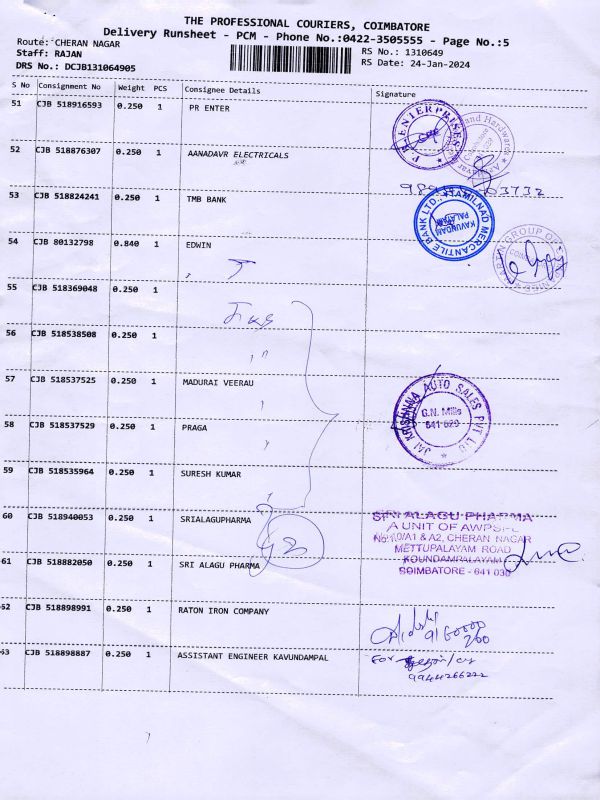 THE PROFESSIONAL COURIERS, COIMBATORE
Delivery Runsheet - PCM - Phone No.:0422-3505555 - Page No.:5
Route: CHERAN NAGAR RS No.: 1310649
Staff: RAJAN RS Date: 24-Jan-2024
DRS No.: DCJB131064905
S No Consignment No Weight PCS Consignee Details Signature
51 CJB 518916593 0.250 1 PR ENTER
P.R. ENTERPRISES
and Hardwares
52 CJB 518876307 0.250 1 AANADAVR ELECTRICALS
53 CJB 518824241 0.250 1 TMB BANK
TAMILNAD MERCANTILE BANK LTD.,
KAVUNDAM
PALAYAM
54 CJB 80132798 0.840 1 EDWIN
55 CJB 518369048 0.250 1
56 CJB 518538508 0.250 1
57 CJB 518537525 0.250 1 MADURAI VEERAU
JAI KRISHNAA AUTO SALES PVT LTD
G.N. Mills
641 029
58 CJB 518537529 0.250 1 PRAGA
59 CJB 518535964 0.250 1 SURESH KUMAR
60 CJB 518940053 0.250 1 SRIALAGUPHARMA
SRI ALAGU PHARMA
A UNIT OF AWPSPL
No:10/A1 & A2, CHERAN NAGAR
METTUPALAYAM ROAD
KOUNDAMPALAYAM
COIMBATORE - 641 030
61 CJB 518882050 0.250 1 SRI ALAGU PHARMA
62 CJB 518898991 0.250 1 RATON IRON COMPANY
63 CJB 518898887 0.250 1 ASSISTANT ENGINEER KAVUNDAMPAL
For
9944266222